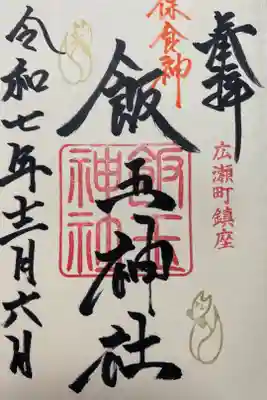 奉拝
広瀬町鎮座
保食神
飯玉神社
飯玉神社
令和七年十二月六日